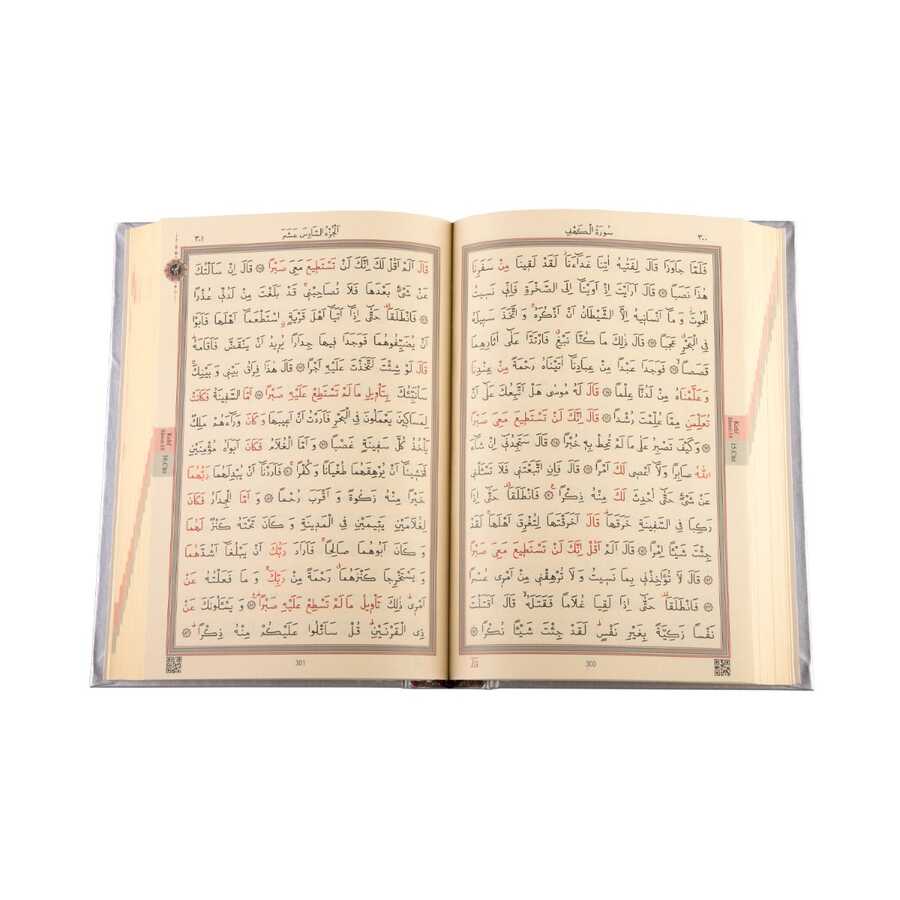 سورة الكهف
٣٠٠
فَلَمَّا جَاوَزَا قَالَ لِفَتٰيهُ اٰتِنَا غَدَٓاءَنَاۘ لَقَدْ لَقٖينَا مِنْ سَفَرِنَا
هٰذَا نَصَبًا ۞ قَالَ اَرَاَيْتَ اِذْ اَوَيْنَٓا اِلَى الصَّخْرَةِ فَاِنّٖى نَسٖيتُ
الْحُوتَۘ وَ مَٓا اَنْسَانٖيهُ اِلَّا الشَّيْطَانُ اَنْ اَذْكُرَهُۚ وَ اتَّخَذَ سَبٖيلَهُ
فِى الْبَحْرِ عَجَبًا ۞ قَالَ ذٰلِكَ مَا كُنَّا نَبْغِ فَارْتَدَّا عَلٰٓى اٰثَارِهِمَا
قَصَصًا ۞ فَوَجَدَا عَبْدًا مِنْ عِبَادِنَٓا اٰتَيْنَاهُ رَحْمَةً مِنْ عِنْدِنَا
وَ عَلَّمْنَاهُ مِنْ لَدُنَّا عِلْمًا ۞ قَالَ لَهُ مُوسٰى هَلْ اَتَّبِعُكَ عَلٰٓى اَنْ
تُعَلِّمَنِ مِمَّا عُلِّمْتَ رُشْدًا ۞ قَالَ اِنَّكَ لَنْ تَسْتَطٖيعَ مَعِىَ صَبْرًا
۞ وَ كَيْفَ تَصْبِرُ عَلٰى مَا لَمْ تُحِطْ بِهٖ خُبْرًا ۞ قَالَ سَتَجِدُنٖٓى اِنْ شَٓاءَ
اللّٰهُ صَابِرًا وَ لَٓا اَعْصٖى لَكَ اَمْرًا ۞ قَالَ فَاِنِ اتَّبَعْتَنٖى فَلَا تَسْئَلْنٖى
عَنْ شَىْءٍ حَتّٰٓى اُحْدِثَ لَكَ مِنْهُ ذِكْرًا ۞ فَانْطَلَقَا حَتّٰٓى اِذَا
رَكِبَا فِى السَّفٖينَةِ خَرَقَهَا قَالَ اَخَرَقْتَهَا لِتُغْرِقَ اَهْلَهَا لَقَدْ
جِئْتَ شَيْئًا اِمْرًا ۞ قَالَ اَلَمْ اَقُلْ اِنَّكَ لَنْ تَسْتَطٖيعَ مَعِىَ صَبْرًا
۞ قَالَ لَا تُؤَاخِذْنٖى بِمَا نَسٖيتُ وَ لَا تُرْهِقْنٖى مِنْ اَمْرٖى عُسْرًا
۞ فَانْطَلَقَا حَتّٰٓى اِذَا لَقِيَا غُلَامًا فَقَتَلَهُ قَالَ اَقَتَلْتَ
نَفْسًا زَكِيَّةً بِغَيْرِ نَفْسٍ لَقَدْ جِئْتَ شَيْئًا نُكْرًا ۞
300
15.Cüz
Kehf
الجزء السادس عشر
٣٠١
قَالَ اَلَمْ اَقُلْ لَكَ اِنَّكَ لَنْ تَسْتَطٖيعَ مَعِىَ صَبْرًا ۞ قَالَ اِنْ سَاَلْتُكَ
عَنْ شَىْءٍ بَعْدَهَا فَلَا تُصَاحِبْنٖى قَدْ بَلَغْتَ مِنْ لَدُنّٖى عُذْرًا
۞ فَانْطَلَقَا حَتّٰٓى اِذَٓا اَتَيَٓا اَهْلَ قَرْيَةٍ اسْتَطْعَمَٓا اَهْلَهَا فَاَبَوْا
اَنْ يُضَيِّفُوهُمَا فَوَجَدَا فٖيهَا جِدَارًا يُرٖيدُ اَنْ يَنْقَضَّ فَاَقَامَهُ
قَالَ لَوْ شِئْتَ لَتَّخَذْتَ عَلَيْهِ اَجْرًا ۞ قَالَ هٰذَا فِرَاقُ بَيْنٖى وَ بَيْنِكَ
سَاُنَبِّئُكَ بِتَاْوٖيلِ مَا لَمْ تَسْتَطِعْ عَلَيْهِ صَبْرًا ۞ اَمَّا السَّفٖينَةُ فَكَانَتْ
لِمَسَاكٖينَ يَعْمَلُونَ فِى الْبَحْرِ فَاَرَدْتُ اَنْ اَعٖيبَهَا وَ كَانَ وَرَٓاءَهُمْ مَلِكٌ
يَاْخُذُ كُلَّ سَفٖينَةٍ غَصْبًا ۞ وَ اَمَّا الْغُلَامُ فَكَانَ اَبَوَاهُ مُؤْمِنَيْنِ
فَخَشٖينَٓا اَنْ يُرْهِقَهُمَا طُغْيَانًا وَ كُفْرًا ۞ فَاَرَدْنَٓا اَنْ يُبْدِلَهُمَا رَبُّهُمَا
خَيْرًا مِنْهُ زَكٰوةً وَ اَقْرَبَ رُحْمًا ۞ وَ اَمَّا الْجِدَارُ فَكَانَ
لِغُلَامَيْنِ يَتٖيمَيْنِ فِى الْمَدٖينَةِ وَ كَانَ تَحْتَهُ كَنْزٌ لَهُمَا
وَ كَانَ اَبُوهُمَا صَالِحًا فَاَرَادَ رَبُّكَ اَنْ يَبْلُغَٓا اَشُدَّهُمَا
وَ يَسْتَخْرِجَا كَنْزَهُمَا رَحْمَةً مِنْ رَبِّكَ وَ مَا فَعَلْتُهُ عَنْ
اَمْرٖى ذٰلِكَ تَاْوٖيلُ مَا لَمْ تَسْطِعْ عَلَيْهِ صَبْرًا ۞ وَ يَسْئَلُونَكَ عَنْ
ذِى الْقَرْنَيْنِ قُلْ سَاَتْلُوا عَلَيْكُمْ مِنْهُ ذِكْرًا ۞
301
16.Cüz
Kehf